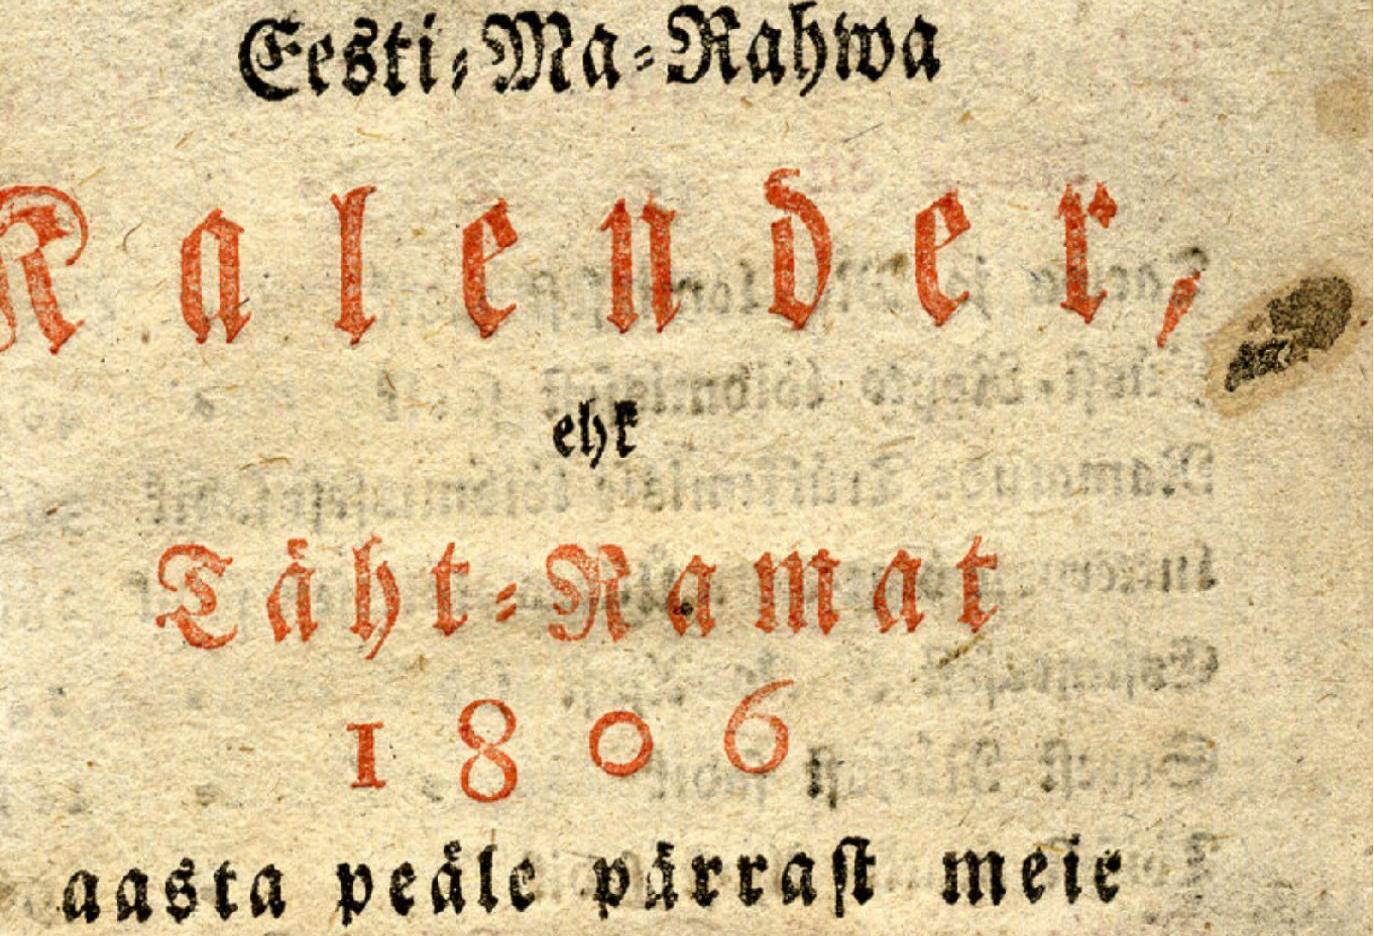 Eesti-Ma-Rahwa
Kalender,
ehk
Täht-Ramat
1806
aasta peäle pärrast meie